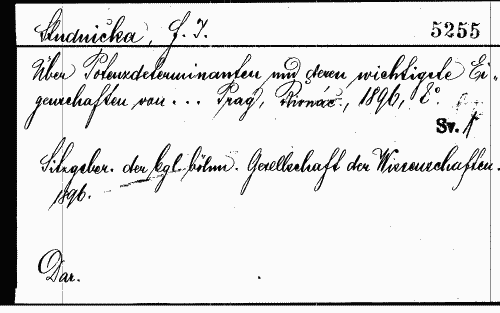 Studnička, F. J. 5255
Über Potenzdeterminanten und deren wichtigste Ei-
genschaften von ... Prag, Řivnáč, 1896, 8°.
Sv.
Sitzgsber. der kgl. böhm. Gesellschaft der Wissenschaften.
1896.
Dar.